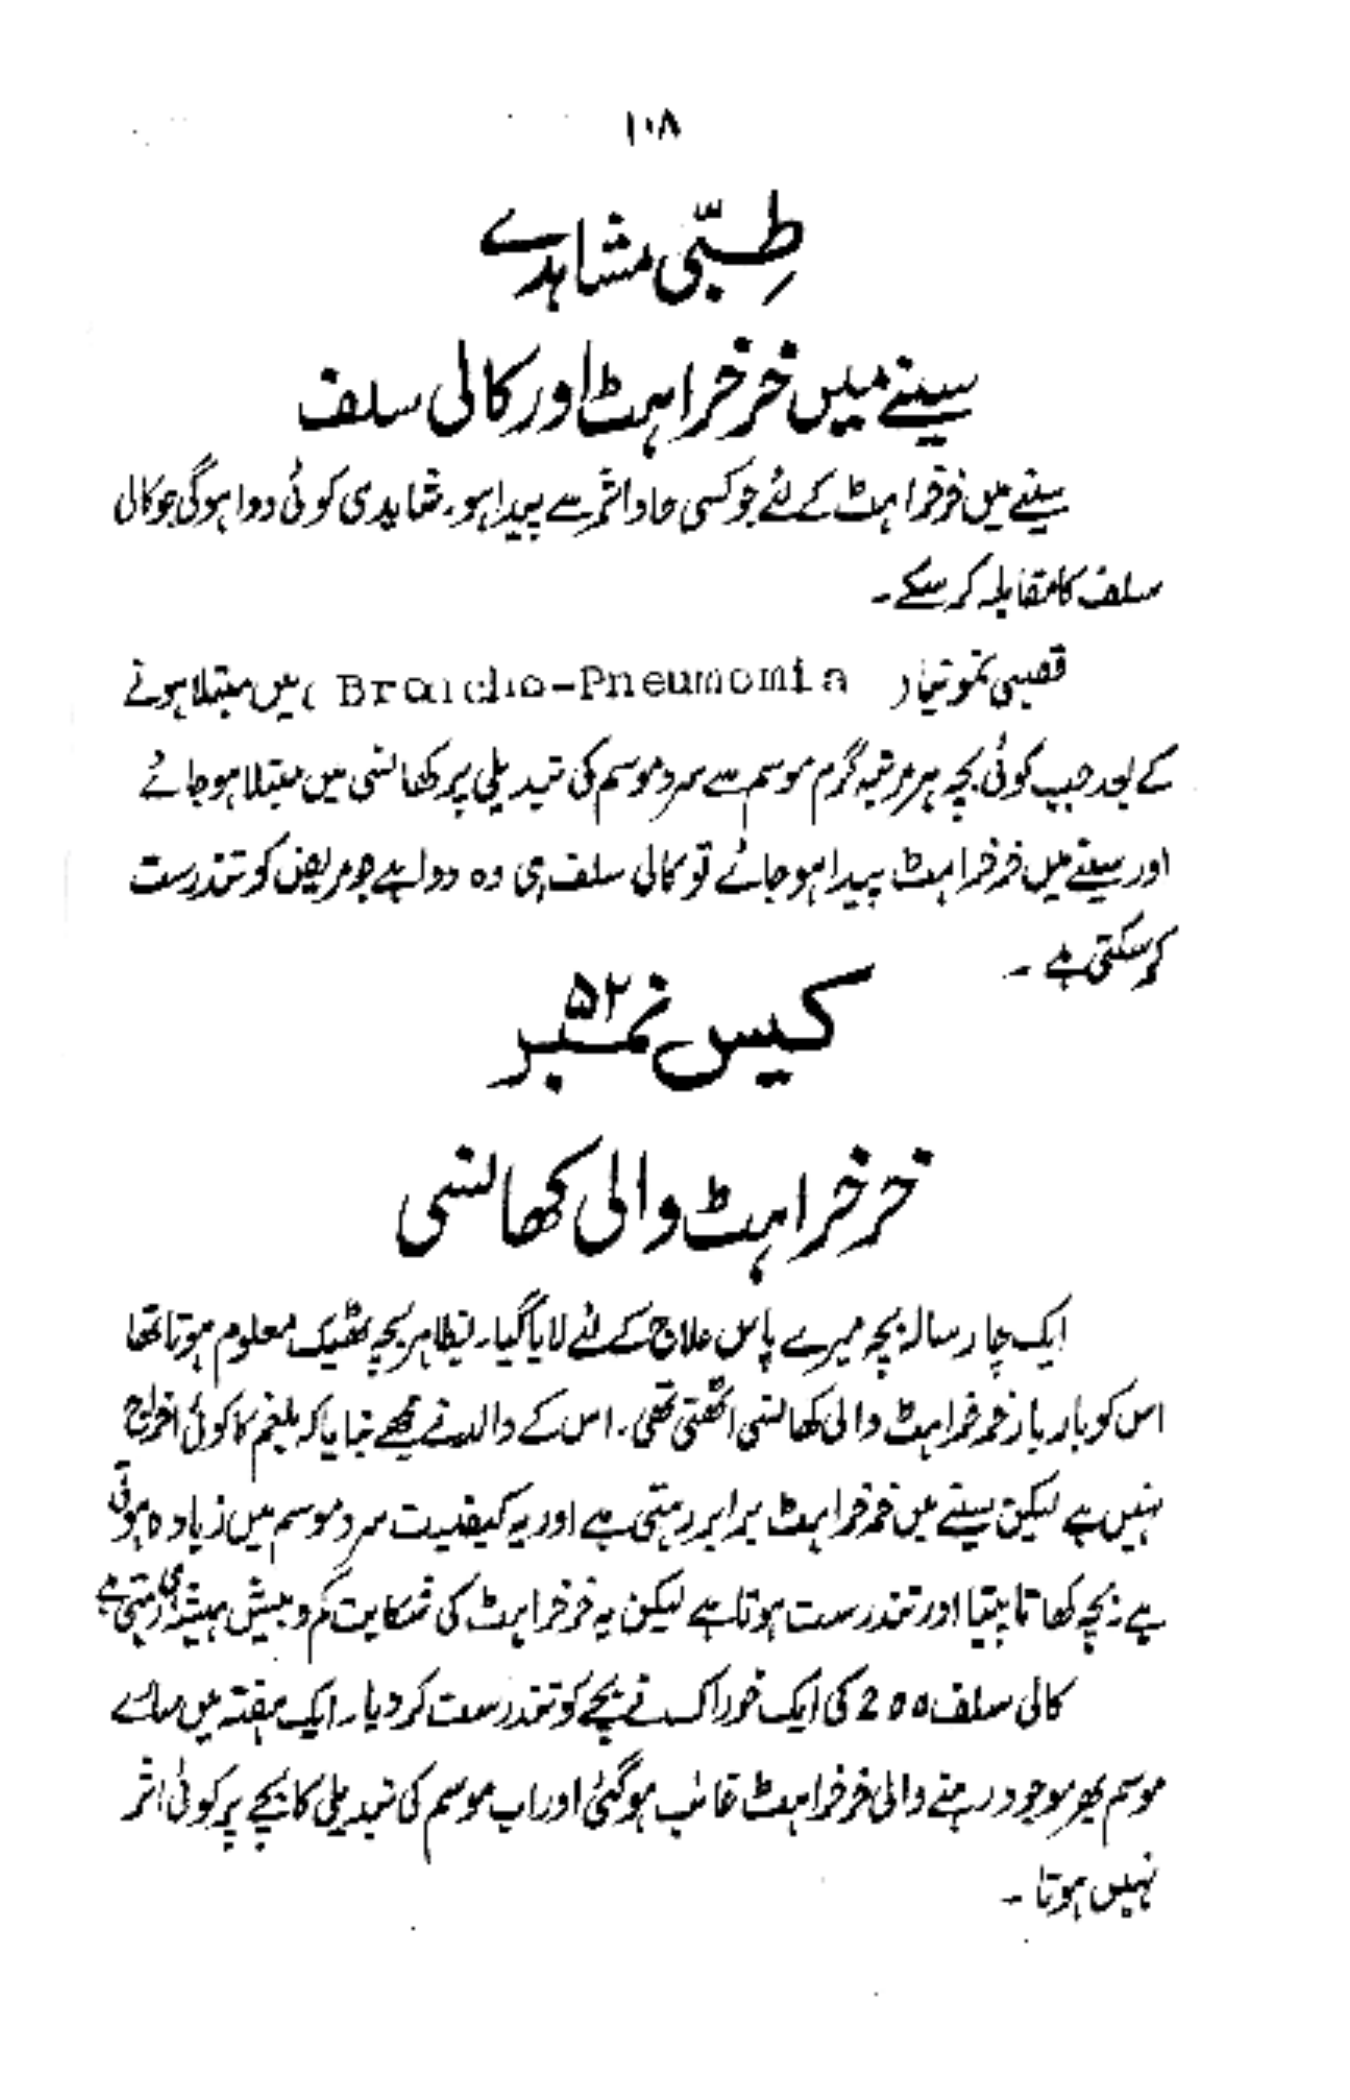 ۱۰۸
طِبّی مشاہدے
سینے میں خرخراہٹ اور کالی سلف
سینے میں خرخراہٹ کے لئے جو کسی حاد اثر سے پیدا ہو۔ شاید ہی کوئی دوا ہوگی جو کالی
سلف کا مقابلہ کر سکے۔
قصبی نمونیا ( Broncho-Pneumomia ) میں مبتلا ہونے
کے بعد جب کوئی بچہ ہر مرتبہ گرم موسم سے سرد موسم کی تبدیلی پر کھانسی میں مبتلا ہو جائے
اور سینے میں خرخراہٹ پیدا ہو جائے تو کالی سلف ہی وہ دوا ہے جو مریض کو تندرست
کر سکتی ہے ۔
کیس نمبر ۵۲
خرخراہٹ والی کھانسی
ایک چار سالہ بچہ میرے پاس علاج کے لئے لایا گیا۔ بظاہر بچہ ٹھیک معلوم ہوتا تھا
اس کو بار بار خرخراہٹ والی کھانسی اٹھتی تھی۔ اس کے والد نے مجھے بتایا کہ بلغم کا کوئی اخراج
نہیں ہے لیکن سینے میں خرخراہٹ برابر رہتی ہے اور یہ کیفیت سرد موسم میں زیادہ ہوتی
ہے۔ بچہ کھاتا پیتا اور تندرست ہوتا ہے لیکن یہ خرخراہٹ کی شکایت کم و بیش ہمیشہ ہی رہتی ہے
کالی سلف 200 کی ایک خوراک نے بچے کو تندرست کر دیا۔ ایک ہفتہ میں سارے
موسم بھر موجود رہنے والی خرخراہٹ غائب ہو گئی اور اب موسم کی تبدیلی کا بچے پر کوئی اثر
نہیں ہوتا ۔